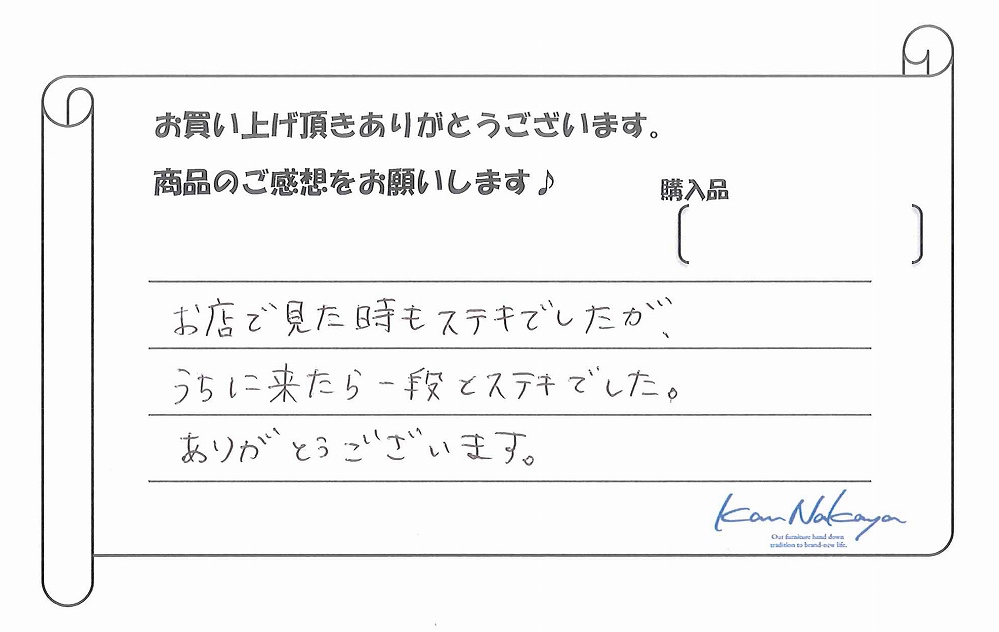 お買い上げ頂きありがとうございます。
商品のご感想をお願いします♪
購入品
お店で見た時もステキでしたが、
うちに来たら一段とステキでした。
ありがとうございます。
Kan Nakaya
Our furniture hand down
tradition to brand-new life.